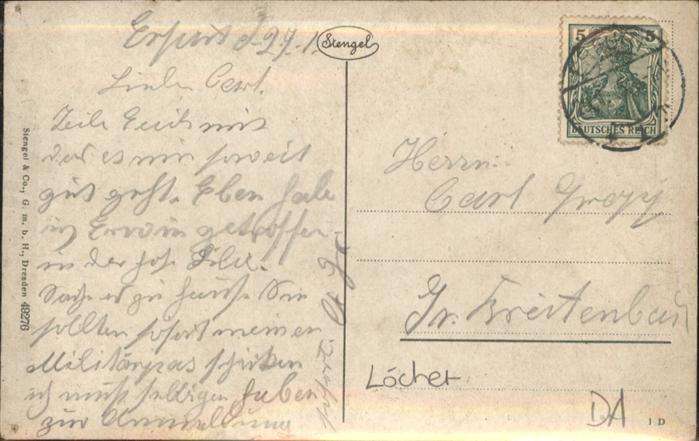 Erfurt d. 29.1.
Stengel
Lieber Carl.
Teile Euch mit
das es mir soweit
gut geht. Eben habe
ich Erwin getroffen
in der
Sage es zu Hause. Sie
sollten sofort meinen
Militärpas schicken
ich muß selbigen haben
zur Anmeldung
sofort.
Stengel & Co., G. m. b. H., Dresden 49276
5 5
DEUTSCHES REICH
Herrn
Carl
Gr. Breitenbach
Löcher
DA
1 D